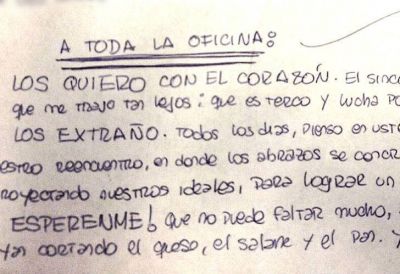 A TODA LA OFICINA:
LOS QUIERO CON EL CORAZÓN. El sinc
que me trajo tan lejos: que es terco y lucha po
LOS EXTRAÑO. Todos los días, pienso en uste
estro reencuentro, en donde los abrazos se concr
royectando nuestros ideales, para lograr un
ESPERENME! que no puede faltar mucho,
yan cortando el queso, el salame y el pan. Y